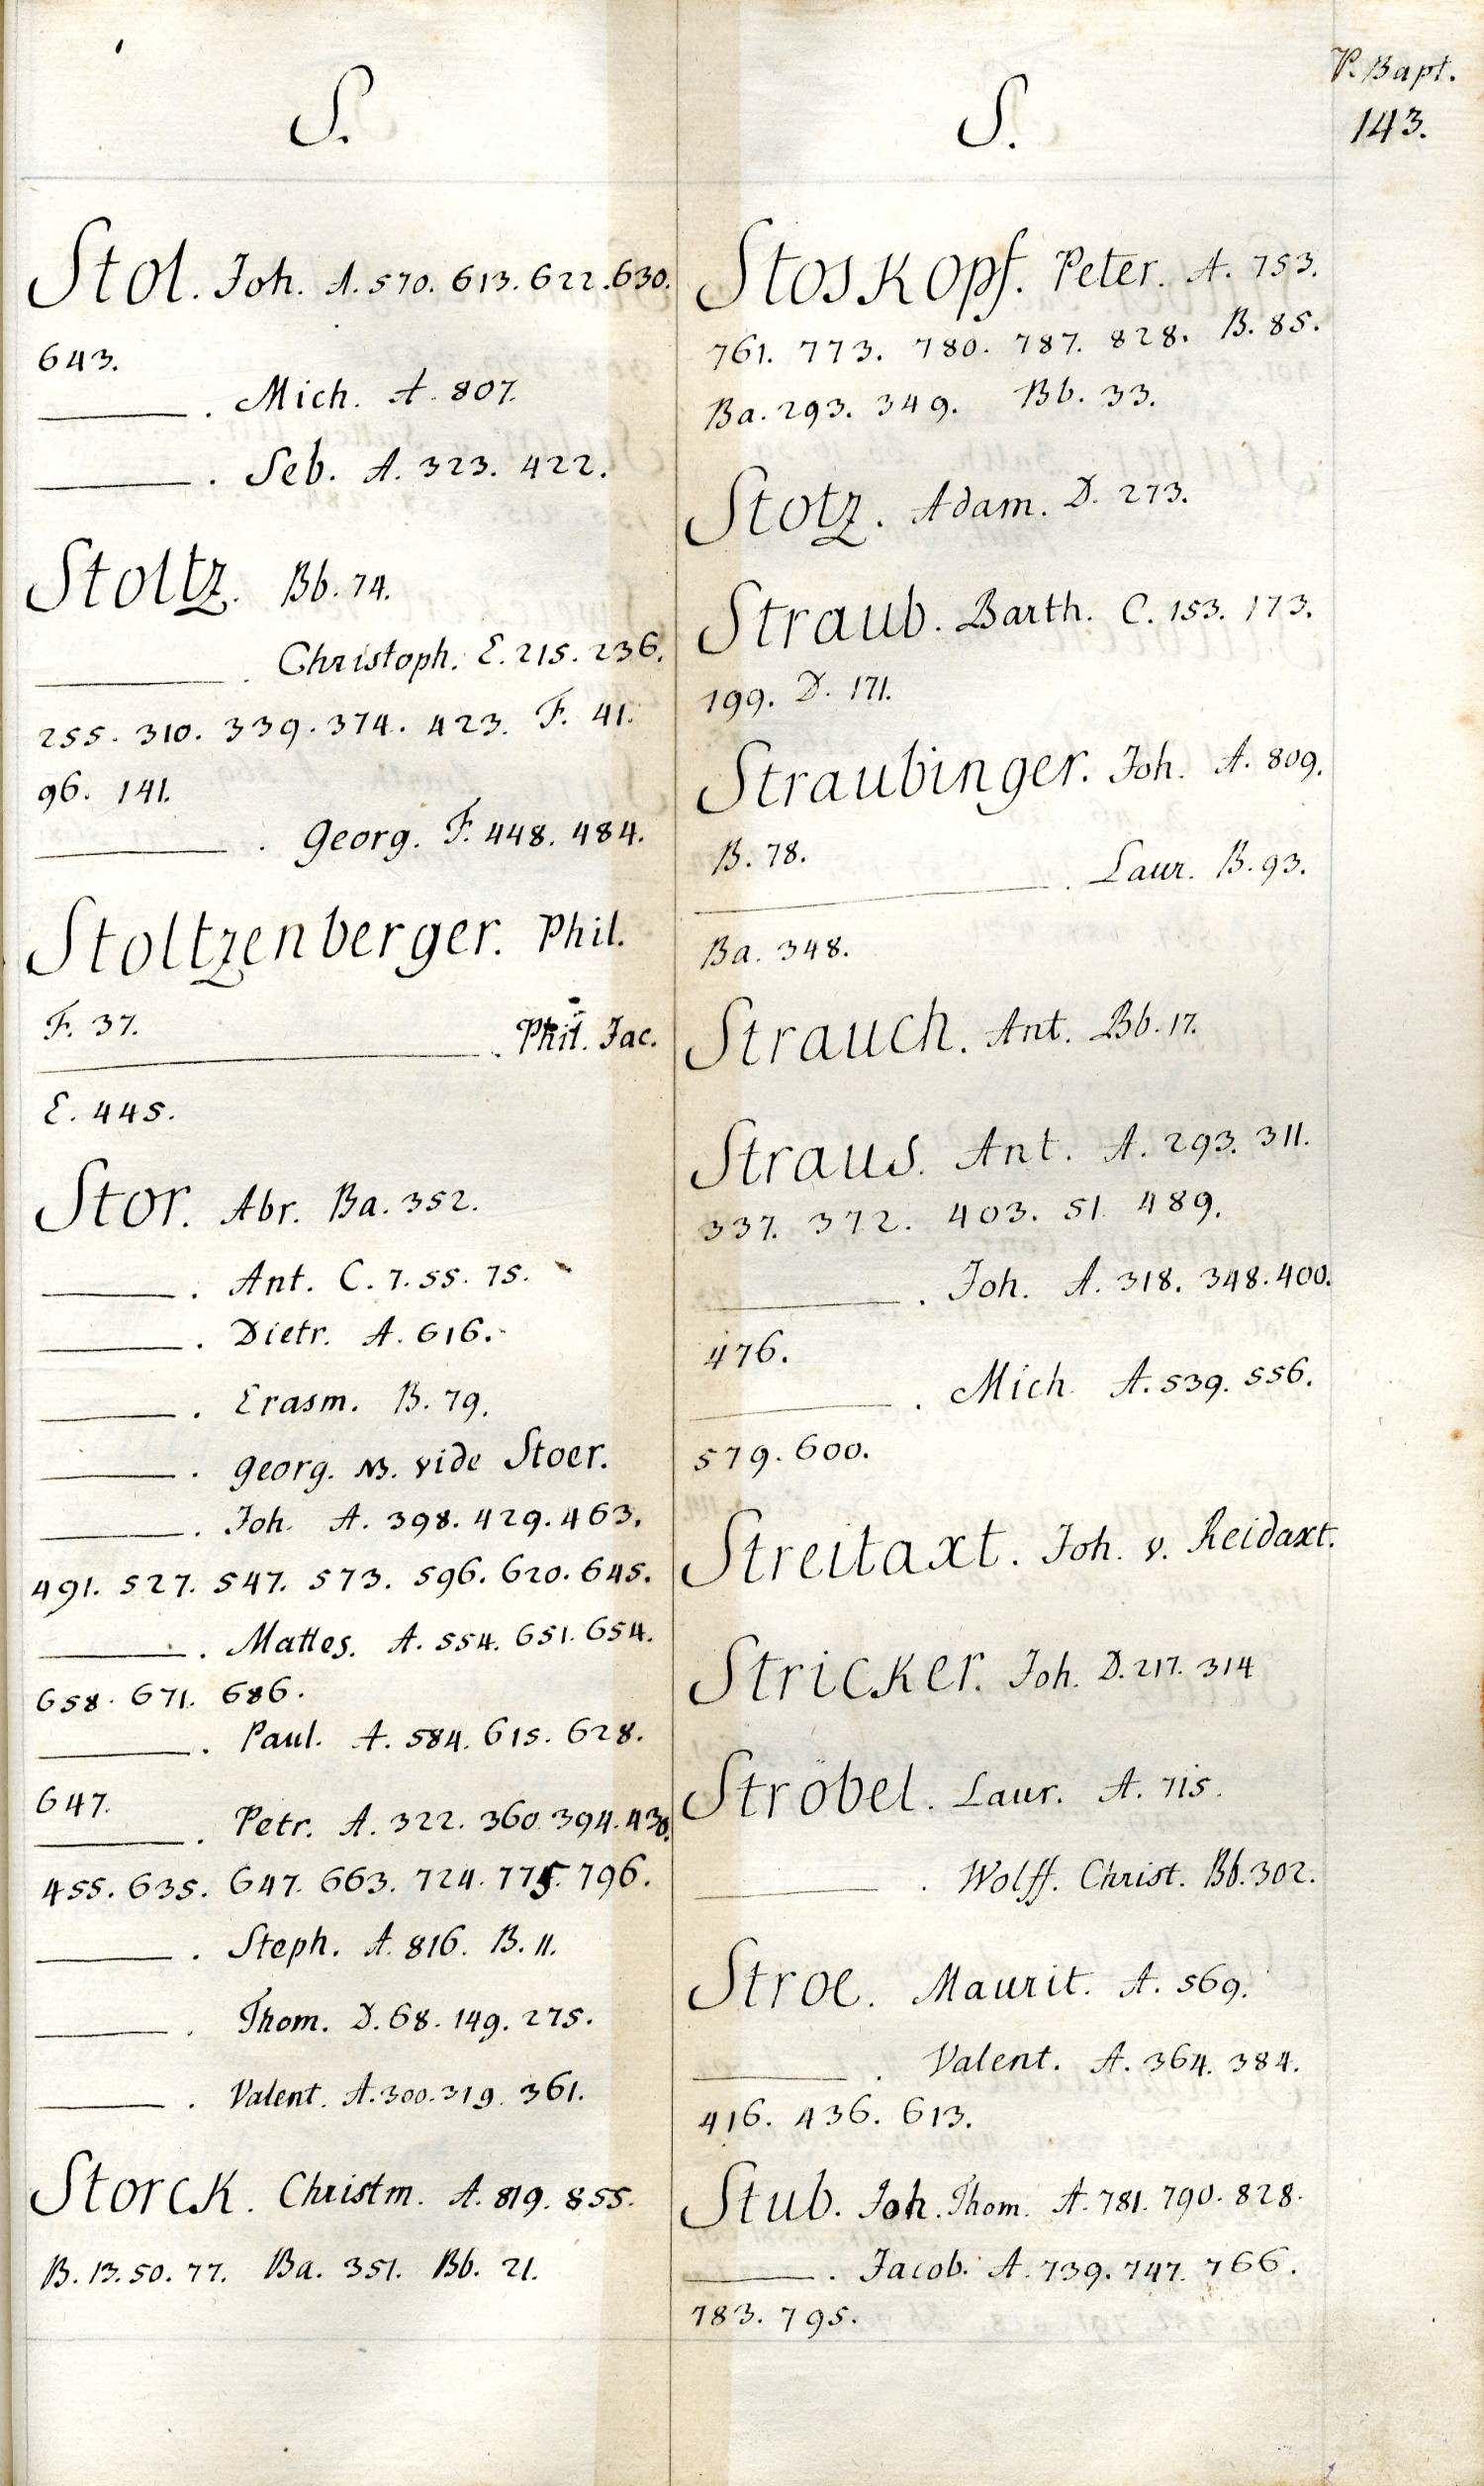 S.
Stol. Joh. A. 570. 613. 622. 630.
643.
——— . Mich. A. 807.
——— . Seb. A. 323. 422.
Stoltz. Bb. 74.
——— . Christoph. E. 215. 236.
255. 310. 339. 374. 423. F. 41.
96. 141.
——— . Georg. F. 448. 484.
Stoltzenberger. Phil.
F. 37.
——— . Phil. Jac.
E. 445.
Stor. Abr. Ba. 352.
——— . Ant. C. 7. 55. 75.
——— . Dietr. A. 616.
——— . Erasm. B. 79.
——— . Georg. NB. vide Stoer.
——— . Joh. A. 398. 429. 463.
491. 527. 547. 573. 596. 620. 645.
——— . Mattes. A. 554. 651. 654.
658. 671. 686.
——— . Paul. A. 584. 615. 628.
647.
——— . Petr. A. 322. 360. 394. 430.
455. 635. 647. 663. 724. 775. 796.
——— . Steph. A. 816. B. 11.
——— . Thom. D. 68. 149. 275.
——— . Valent. A. 300. 319. 361.
Storck. Christm. A. 819. 855.
B. 13. 50. 77. Ba. 351. Bb. 21.
S.
P. Bapt.
143.
Stoskopf. Peter. A. 753.
761. 773. 780. 787. 828. B. 85.
Ba. 293. 349. Bb. 33.
Stotz. Adam. D. 273.
Straub. Barth. C. 153. 173.
199. D. 171.
Straubinger. Joh. A. 809.
B. 78.
——— . Laur. B. 93.
Ba. 348.
Strauch. Ant. Bb. 17.
Straus. Ant. A. 293. 311.
337. 372. 403. 51. 489.
——— . Joh. A. 318. 348. 400.
476.
——— . Mich. A. 539. 556.
579. 600.
Streitaxt. Joh. v. Reidaxt.
Stricker. Joh. D. 217. 314
Ströbel. Laur. A. 715.
——— . Wolff. Christ. Bb. 302.
Stroe. Maurit. A. 569.
——— . Valent. A. 364. 384.
416. 436. 613.
Stub. Joh. Thom. A. 781. 790. 828.
——— . Jacob. A. 739. 747. 766.
783. 795.